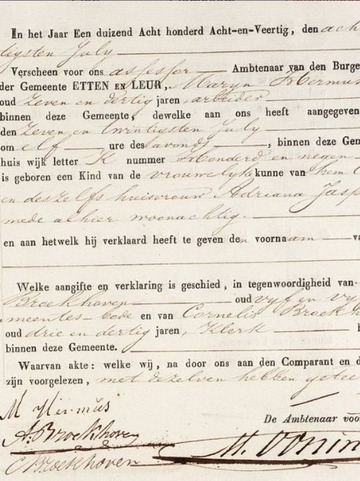 In het Jaar Een duizend Acht honderd Acht-en-Veertig, den ach
tigsten July
Verscheen voor ons assessor Ambtenaar van den Burge
der Gemeente ETTEN EN LEUR, Maryn Hermus
oud zeven en dertig jaren arbeider
binnen deze Gemeente, dewelke aan ons heeft aangegeven
den zeven en twintigsten July
om elf ure des avonds, binnen deze Gem
huis wijk letter K nummer honderd en negen
is geboren een Kind van de vrouwelyke kunne van hem
en deszelfs huisvrouw Adriana Jasp
mede alhier woonachtig.
en aan hetwelk hij verklaard heeft te geven den voornaam va
Welke aangifte en verklaring is geschied, in tegenwoordigheid van
Broekhoven oud vyf en vy
meentes bode en van Cornelis Broek
oud drie en dertig jaren, klerk b
binnen deze Gemeente.
Waarvan akte: welke wij, na door ons aan den Comparant en de
zijn voorgelezen, met dezelven hebben getee
M Hermus
De Ambtenaar voo
A. Broekhoven
C Broekhoven